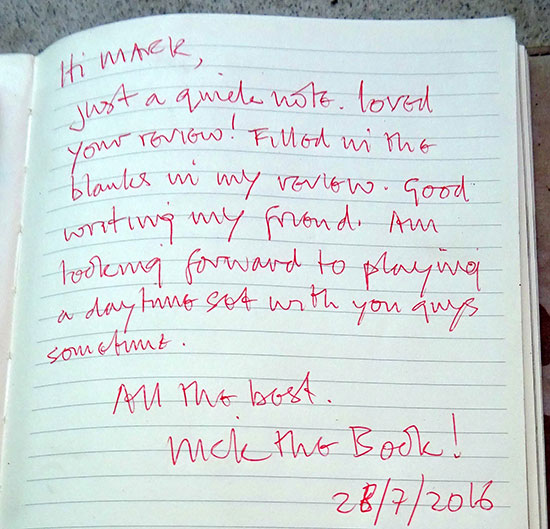 Hi Mark,
just a quick note. loved
your review! Filled in the
blanks in my review. Good
writing my friend. Am
looking forward to playing
a daytime set with you guys
sometime.
All the best.
Nick the Book!
28/7/2016